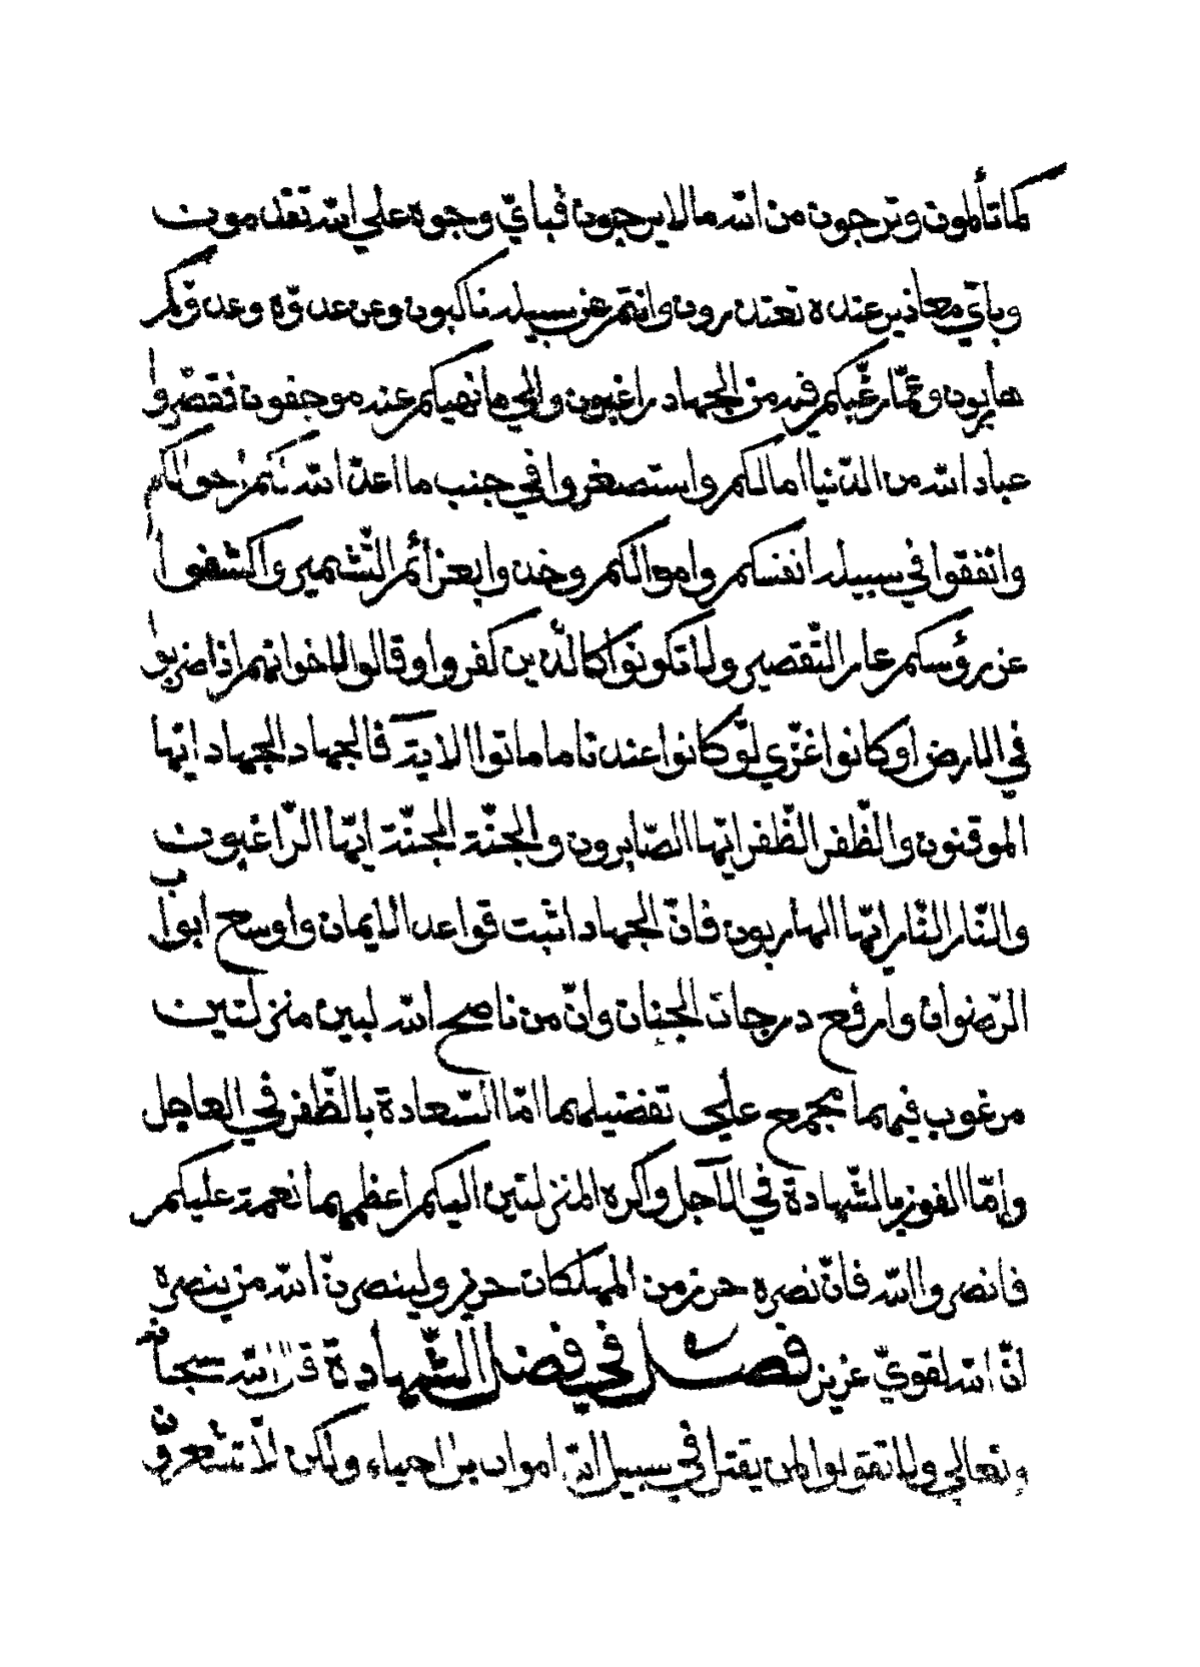 كما تألمون وترجون من الله ما لا يرجون فبأي وجوه على الله تقدمون
وبأي معاذير عنده تعتذرون وانتم عن سبيله ناكبون وعن عدوه وعدوكم
هاربون وعما رغبكم فيه من الجهاد راغبون والى ما نهيكم عنه موجفون فقصروا
عباد الله من الدنيا امالكم واستصغروا في جنب ما اعد الله لكم احوالكم
وانفقوا في سبيله انفسكم واموالكم وخذوا بعزائم التشمير واكشفوا
عن رؤسكم عار التقصير ولا تكونوا كالذين كفروا وقالوا لاخوانهم اذا ضربوا
في الارض او كانوا غزي لو كانوا عندنا ما ماتوا الاية فالجهاد الجهاد ايها
الموقنون والظفر الظفر ايها الصابرون والجنة الجنة ايها الراغبون
والنار النار ايها الهاربون فان الجهاد اثبت قواعد الايمان واوسع ابواب
الرضوان وارفع درجات الجنان وان من ناصح الله لبين منزلتين
مرغوب فيهما مجمع على تفضيلهما اما السعادة بالظفر في العاجل
وإما الفوز بالشهادة في الآجل واكره المنزلتين اليكم اعظمهما نعمة عليكم
فانصروا الله فان نصره حرز من المهلكات حريز ولينصرن الله من ينصره
ان الله لقوي عزيز فصل في فضل الشهادة قال الله سبحانه
وتعالى ولا تقولوا لمن يقتل في سبيل الله اموات بل احياء ولكن لا تشعرون